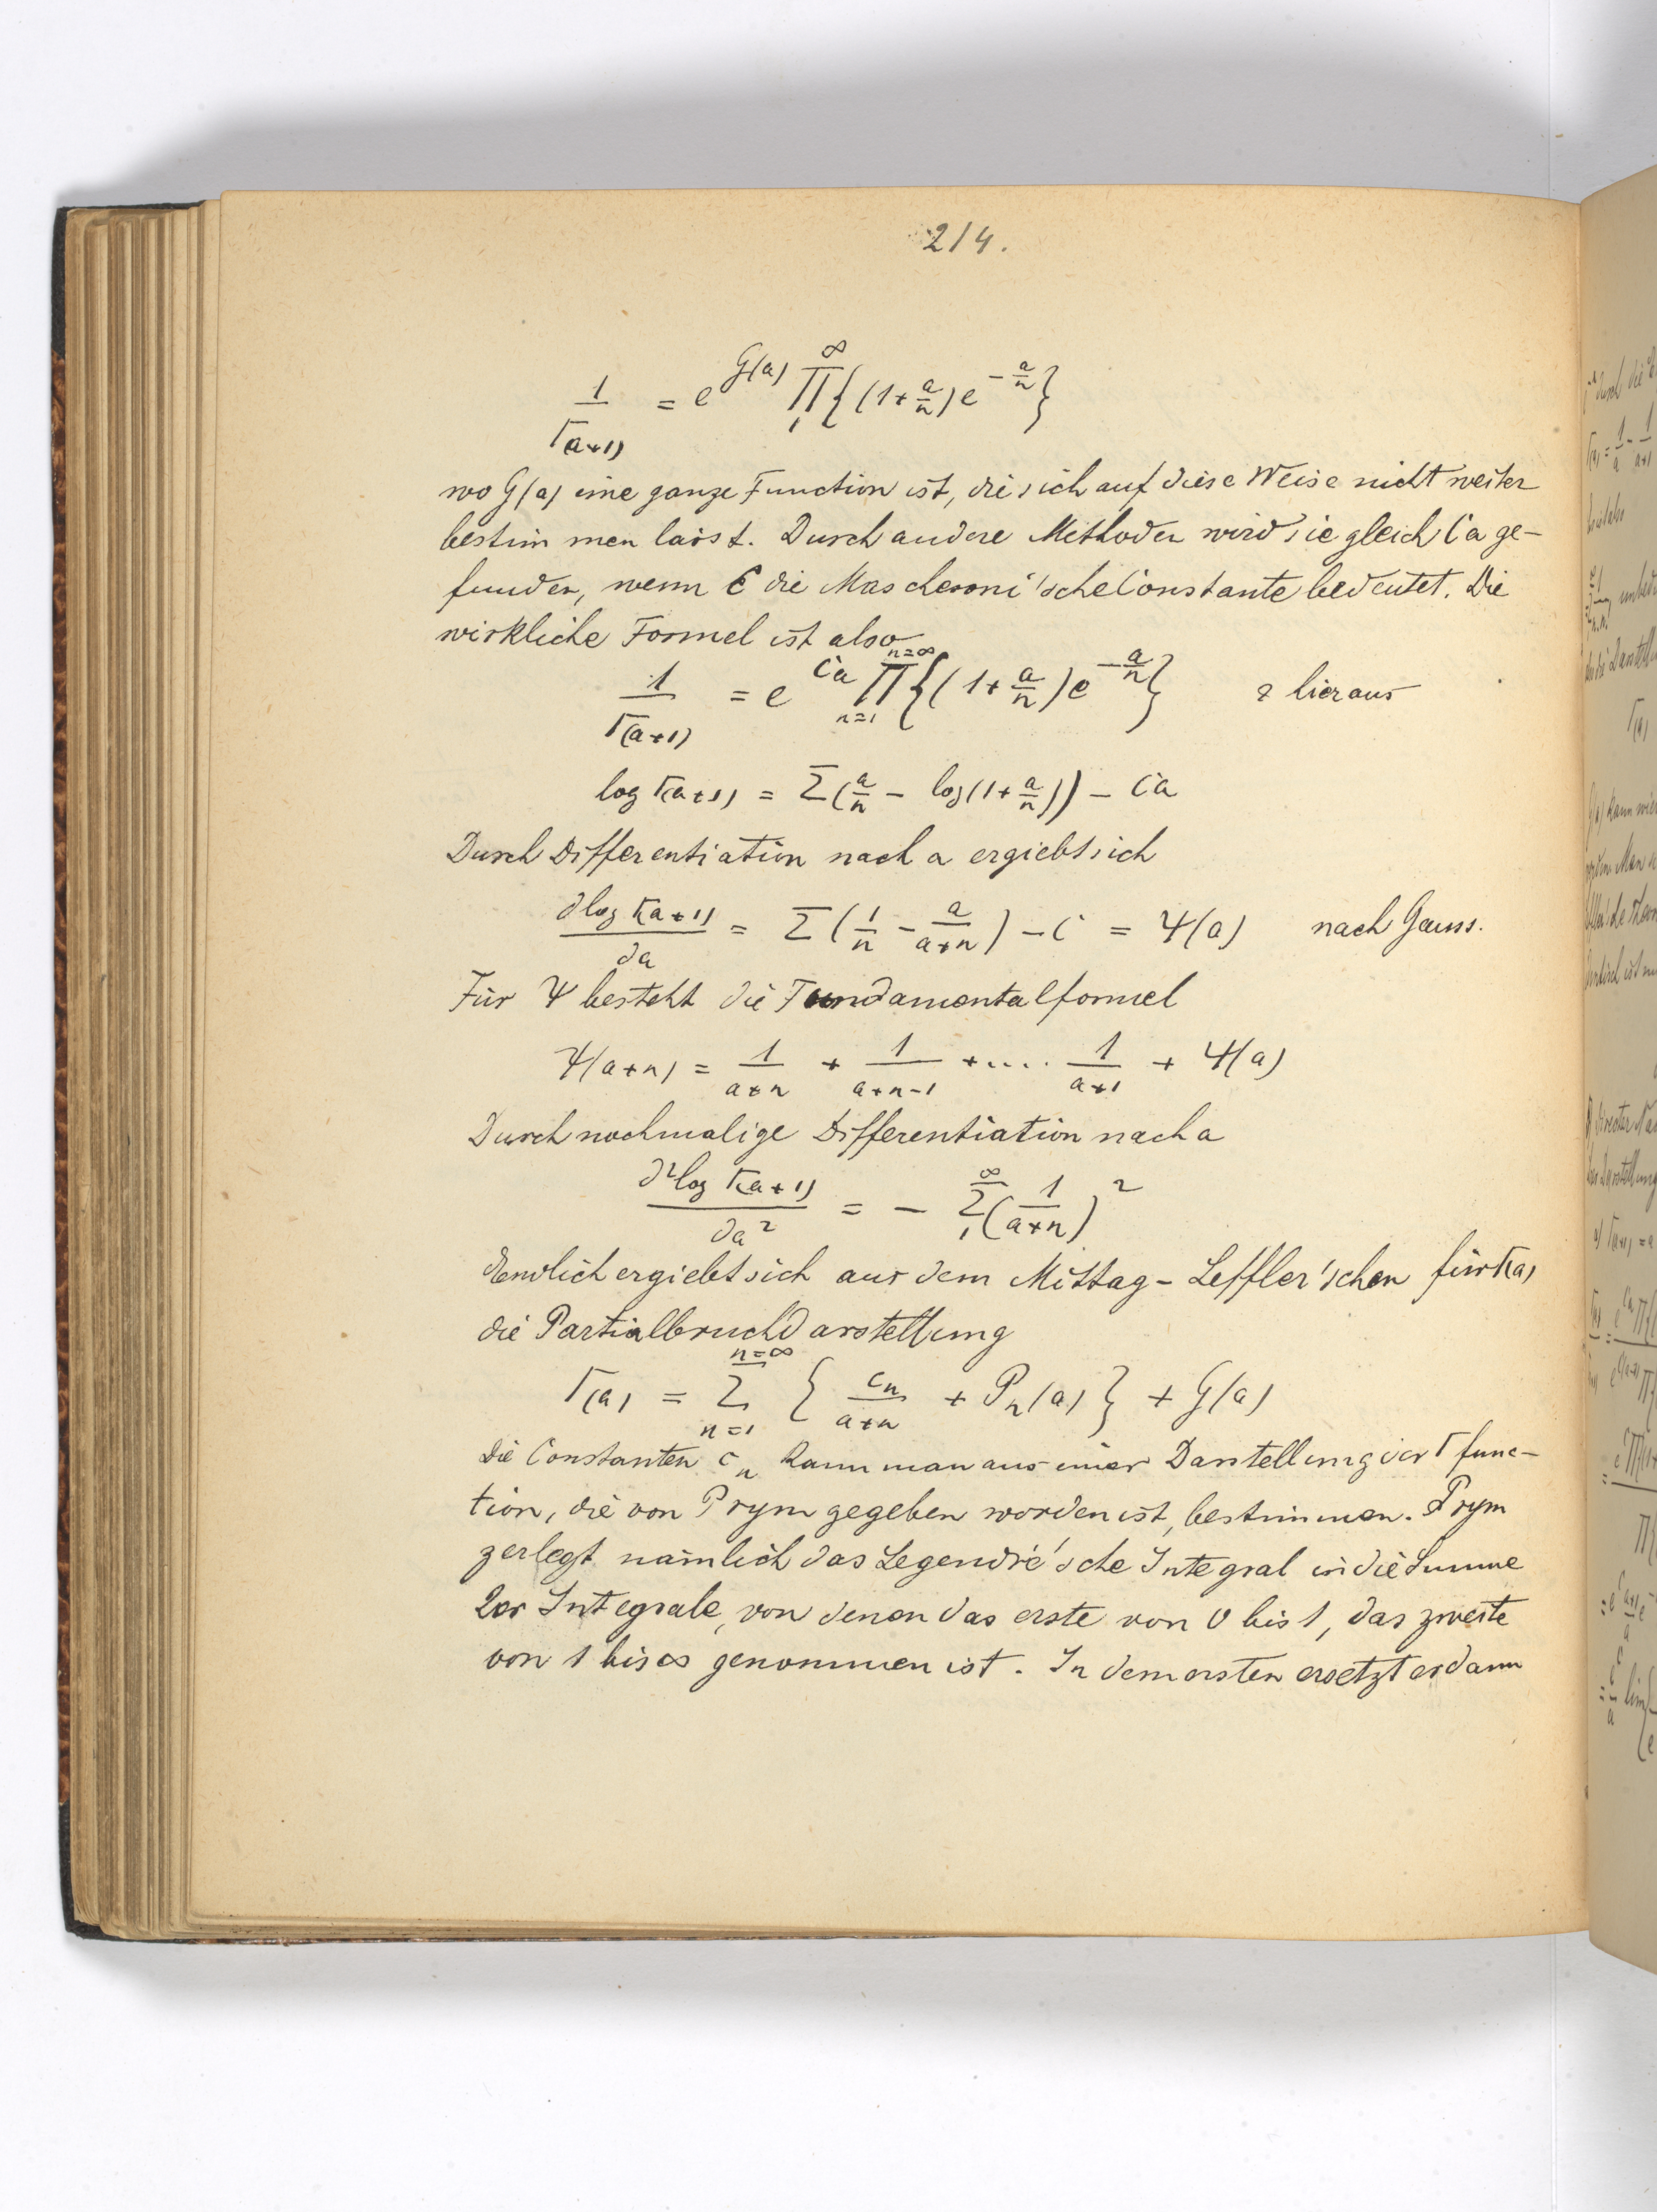 214.
1/Γ(a+1) = e^G(a) ∏_1^∞ {(1+a/n) e^-a/n}
wo G(a) eine ganze Function ist, die sich auf diese Weise nicht weiter
bestimmen lässt. Durch andere Methoden wird sie gleich Ca ge-
funden, wenn C die Mascheroni'sche Constante bedeutet. Die
wirkliche Formel ist also
1/Γ(a+1) = e^Ca ∏_n=1^n=∞ {(1+a/n) e^-a/n} & hieraus
log Γ(a+1) = Σ(a/n - log(1+a/n)) - Ca
Durch Differentiation nach a ergiebt sich
∂log Γ(a+1)/∂a = Σ(1/n - a/a+n) - C = Ψ(a) nach Gauss.
Für Ψ besteht die Fundamentalformel
Ψ(a+n) = 1/a+n + 1/a+n-1 + .... 1/a+1 + Ψ(a)
Durch nochmalige Differentiation nach a
∂²log Γ(a+1)/∂a² = - Σ_1^∞ (1/a+n)²
Endlich ergiebt sich aus dem Mittag-Leffler'schen für Γ(a)
die Partialbruchdarstellung
Γ(a) = Σ_n=1^n=∞ {c_n/a+n + P_n(a)} + G(a)
Die Constanten c_n kann man aus einer Darstellung der Γ func-
tion, die von Prym gegeben worden ist, bestimmen. Prym
zerlegt nämlich das Legendre'sche Integral in die Summe
2er Integrale, von denen das erste von 0 bis 1, das zweite
von 1 bis ∞ genommen ist. In dem ersten ersetzt er dann